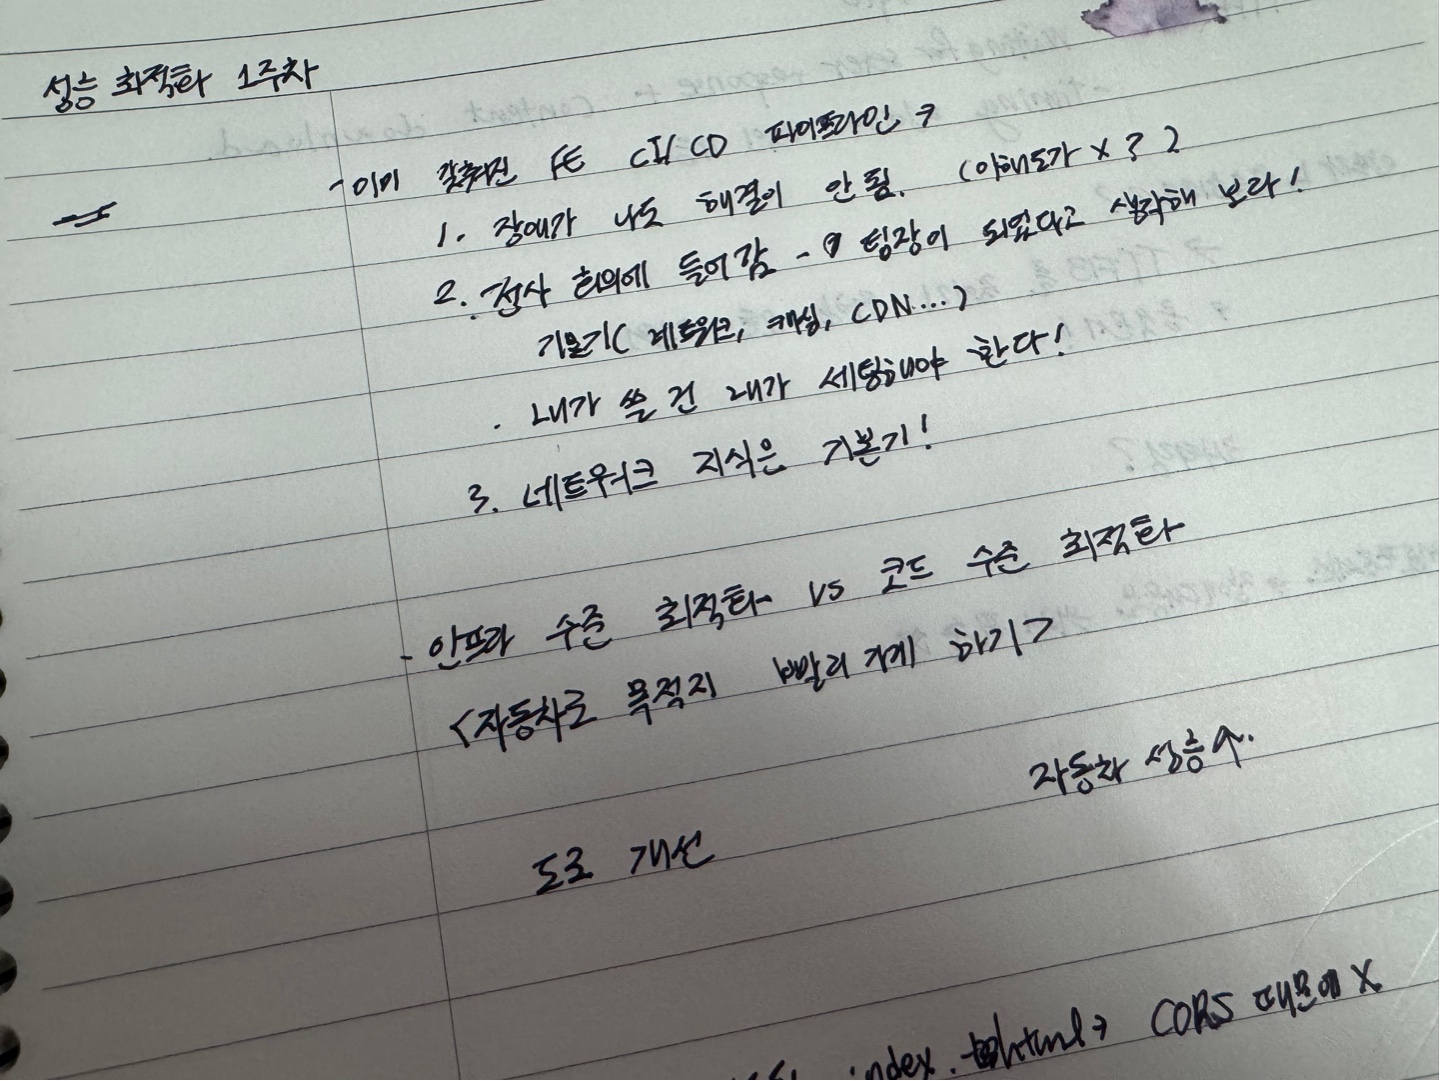 성능 최적화 1주차
- 이미 갖춰진 FE CI/CD 파이프라인 →
1. 장애가 나도 해결이 안 됨. (이해도가 X ? )
2. 전사 회의에 들어감 → 팀장이 되었다고 생각해 보라!
기울기( 네트워크, 캐싱, CDN...)
. 내가 쓸 건 내가 세팅해야 한다!
3. 네트워크 지식은 기본기!
- 인프라 수준 최적화 vs 코드 수준 최적화
<자동차로 목적지 빨리 가게 하기>
자동차 성능↑.
도로 개선
index.html → CORS 때문에 X